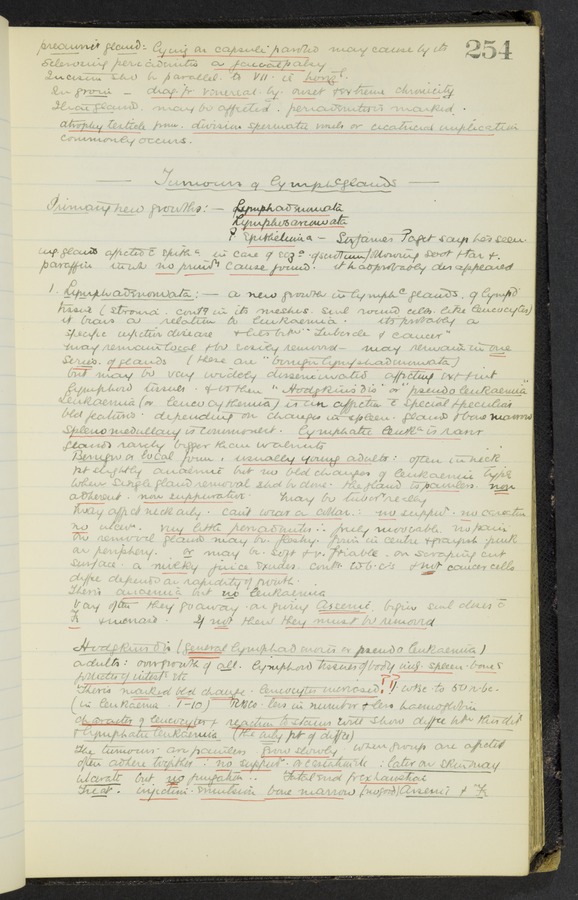 254
preauric gland: lying on capsule parotid may cause by its
sclerosing periadenitis a facial palsy.
Incision shd be parallel to VII. ie horiz
In groin - diag fr venereal by. onset extreme chronicity
Iliac gland. may be affected. periadenitis marked.
atrophy testicle from. division spermatic vessels or cicatricial implication
commonly occurs.
Tumours of Lymphc glands
Primary new growths: — Lymphadenomata
Lymphosarcomata
? Epithelioma - Sir James Paget says has seen
ing glands affected c epitha in case of ecza of scrotum following soot tar &
paraffin in wh no primy cause found. it had probably disappeared
1. Lymphadenomata: — a new growth in lymphc glands, of lymphd
tissue (stroma contg in its meshes small round cells like leucocytes)
it bears a relation to leukaemia. its probably a
specific infective disease
may remain local & be easily removed - may remain in one
series of glands (these are "benign lymphadenomata)
but may be very widely disseminated affecting
lymphoid tissues. & is then "Hodgkins dis" or "pseudo leukaemia"
Leukaemia (or leucocythemia) is an affection c special & peculiar
bld features. depending on changes in spleen. gland & bone marrow
Spleno medullary is commonest. Lymphatic Leuka is rarer
glands rarely bigger than walnuts
Benign or local form. usually young adults: often in neck
pt slightly anaemic but no bld changes of leukaemic type
when single gland removal shd be done. the gland is painless. non
adherent. non suppurative. may be
may affect neck only. cant wear a collar: no suppn. no caseation
no ulcer. very little periadenitis: freely moveable. no pain
On removal gland may be fleshy. firm in centre & grayish pink
on periphery. or may be soft & friable. on scraping cut
surface a milky juice exudes. contg w.b.c's & not cancer cells
differ depends on rapidity of growth.
There's anaemia but no leukaemia
Very often they go away on giving Arsenic. begin small doses c
Fe increased. If not then they must be removed
Hodgkins dis (general lymphadenoma or pseudo leukaemia)
adults: overgrowth of all. lymphoid tissues of body inc. spleen. bones
There's marked bld change. leucocytes increased.
(in leukaemia. 1-10) RBCs. less in number & less haemoglobin
character of leucocytes & reaction to stains will show differ btn this dis
& lymphatic leukaemia (the only pt of differ)
The tumours are painless. grow slowly. when group are affected
often adhere together: no suppn or caseation: later on skin may
ulcerate but no fungation. Fatal end fr exhaustion
Treat. injection emulsion bone marrow (no good) Arsenic & Fe